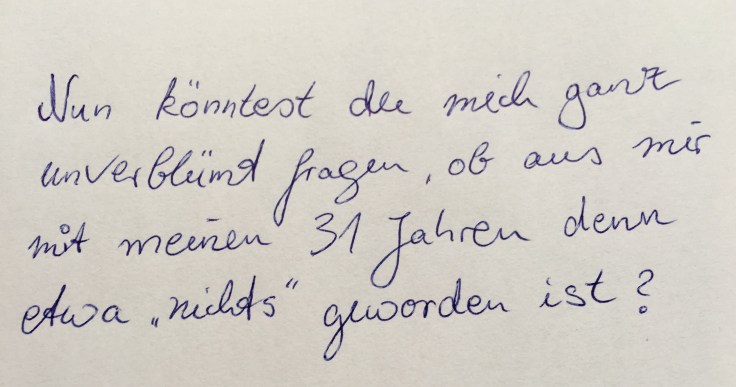 Nun könntest du mich ganz
unverblümt fragen, ob aus mir
mit meinen 31 Jahren denn
etwa „nichts“ geworden ist?